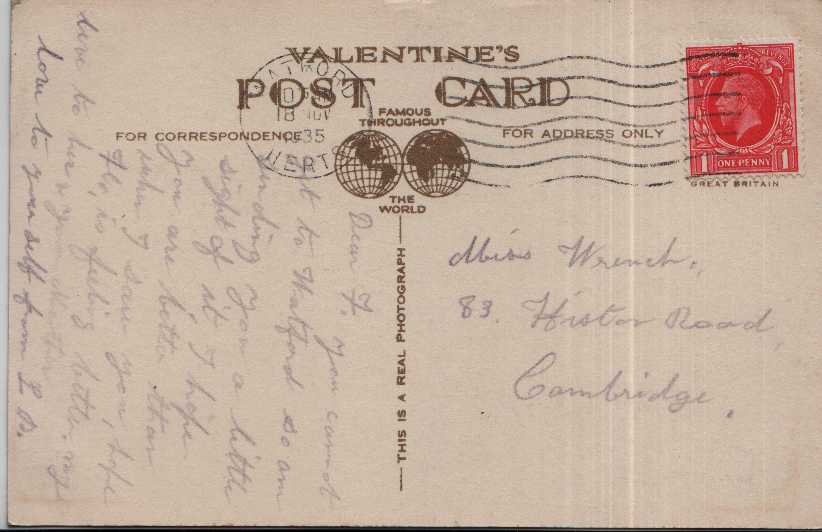 VALENTINE'S
POST CARD
FAMOUS
THROUGHOUT
THE
WORLD
FOR CORRESPONDENCE
FOR ADDRESS ONLY
WATFORD
18 NOV
1935
HERTS
1 ONE PENNY 1
GREAT BRITAIN
THIS IS A REAL PHOTOGRAPH
Dear F. you cannot
get to Watford so am
sending you a little
sight of it I hope
you are better than
when I saw you, hope
Flo, is feeling better. my
love to her & your Mother
love to yourself from L B.
Miss Wrench,
83. Histon Road,
Cambridge.